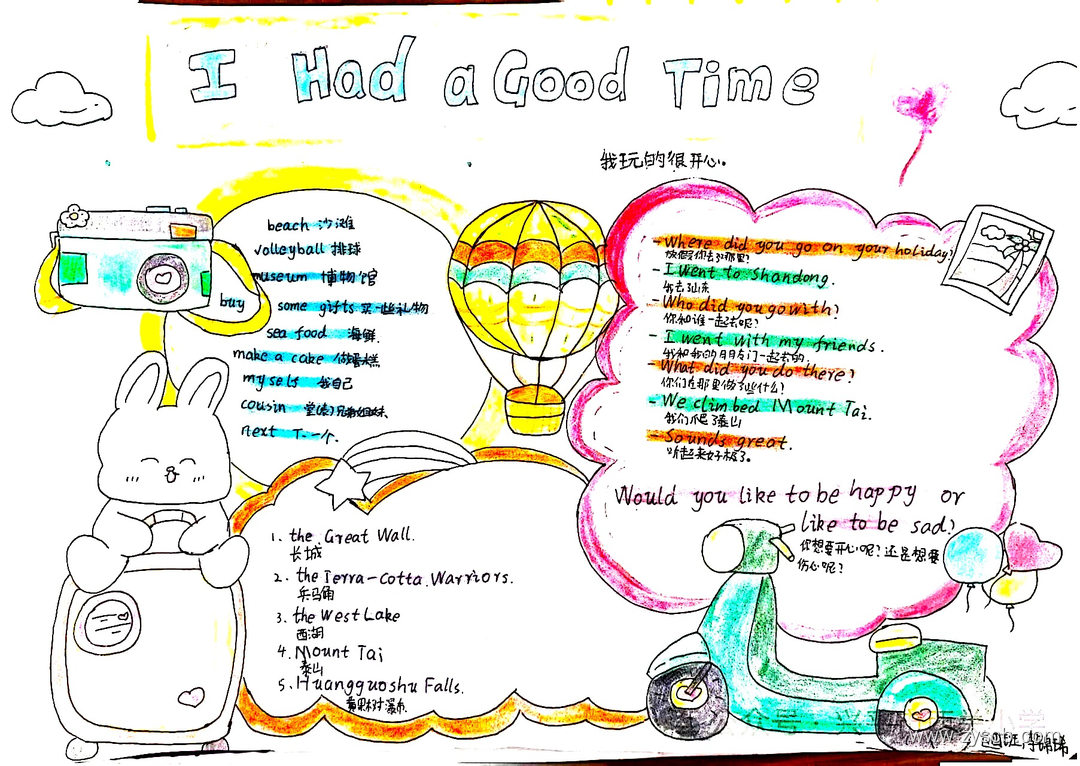 I Had a Good Time
我玩的很开心。
beach 沙滩
volleyball 排球
museum 博物馆
buy some gifts 买一些礼物
sea food 海鲜
make a cake 做蛋糕
myself 我自己
cousin 堂(表)兄弟姐妹
next 下一个.
1. the Great Wall.
长城
2. the Terra-cotta Warriors.
兵马俑
3. the West Lake
西湖
4. Mount Tai
泰山
5. Huangguoshu Falls.
黄果树瀑布
- Where did you go on your holiday?
放假你去了哪里?
- I Went to Shandong.
我去山东
- Who did you go with?
你和谁一起去呢?
- I went with my friends.
我和我的朋友们一起去的.
- What did you do there?
你们在那里做了些什么?
- We climbed Mount Tai.
我们爬了泰山
- Sounds great.
听起来好极了。
Would you like to be happy or
like to be sad?
你想要开心呢?还是想要
伤心呢?